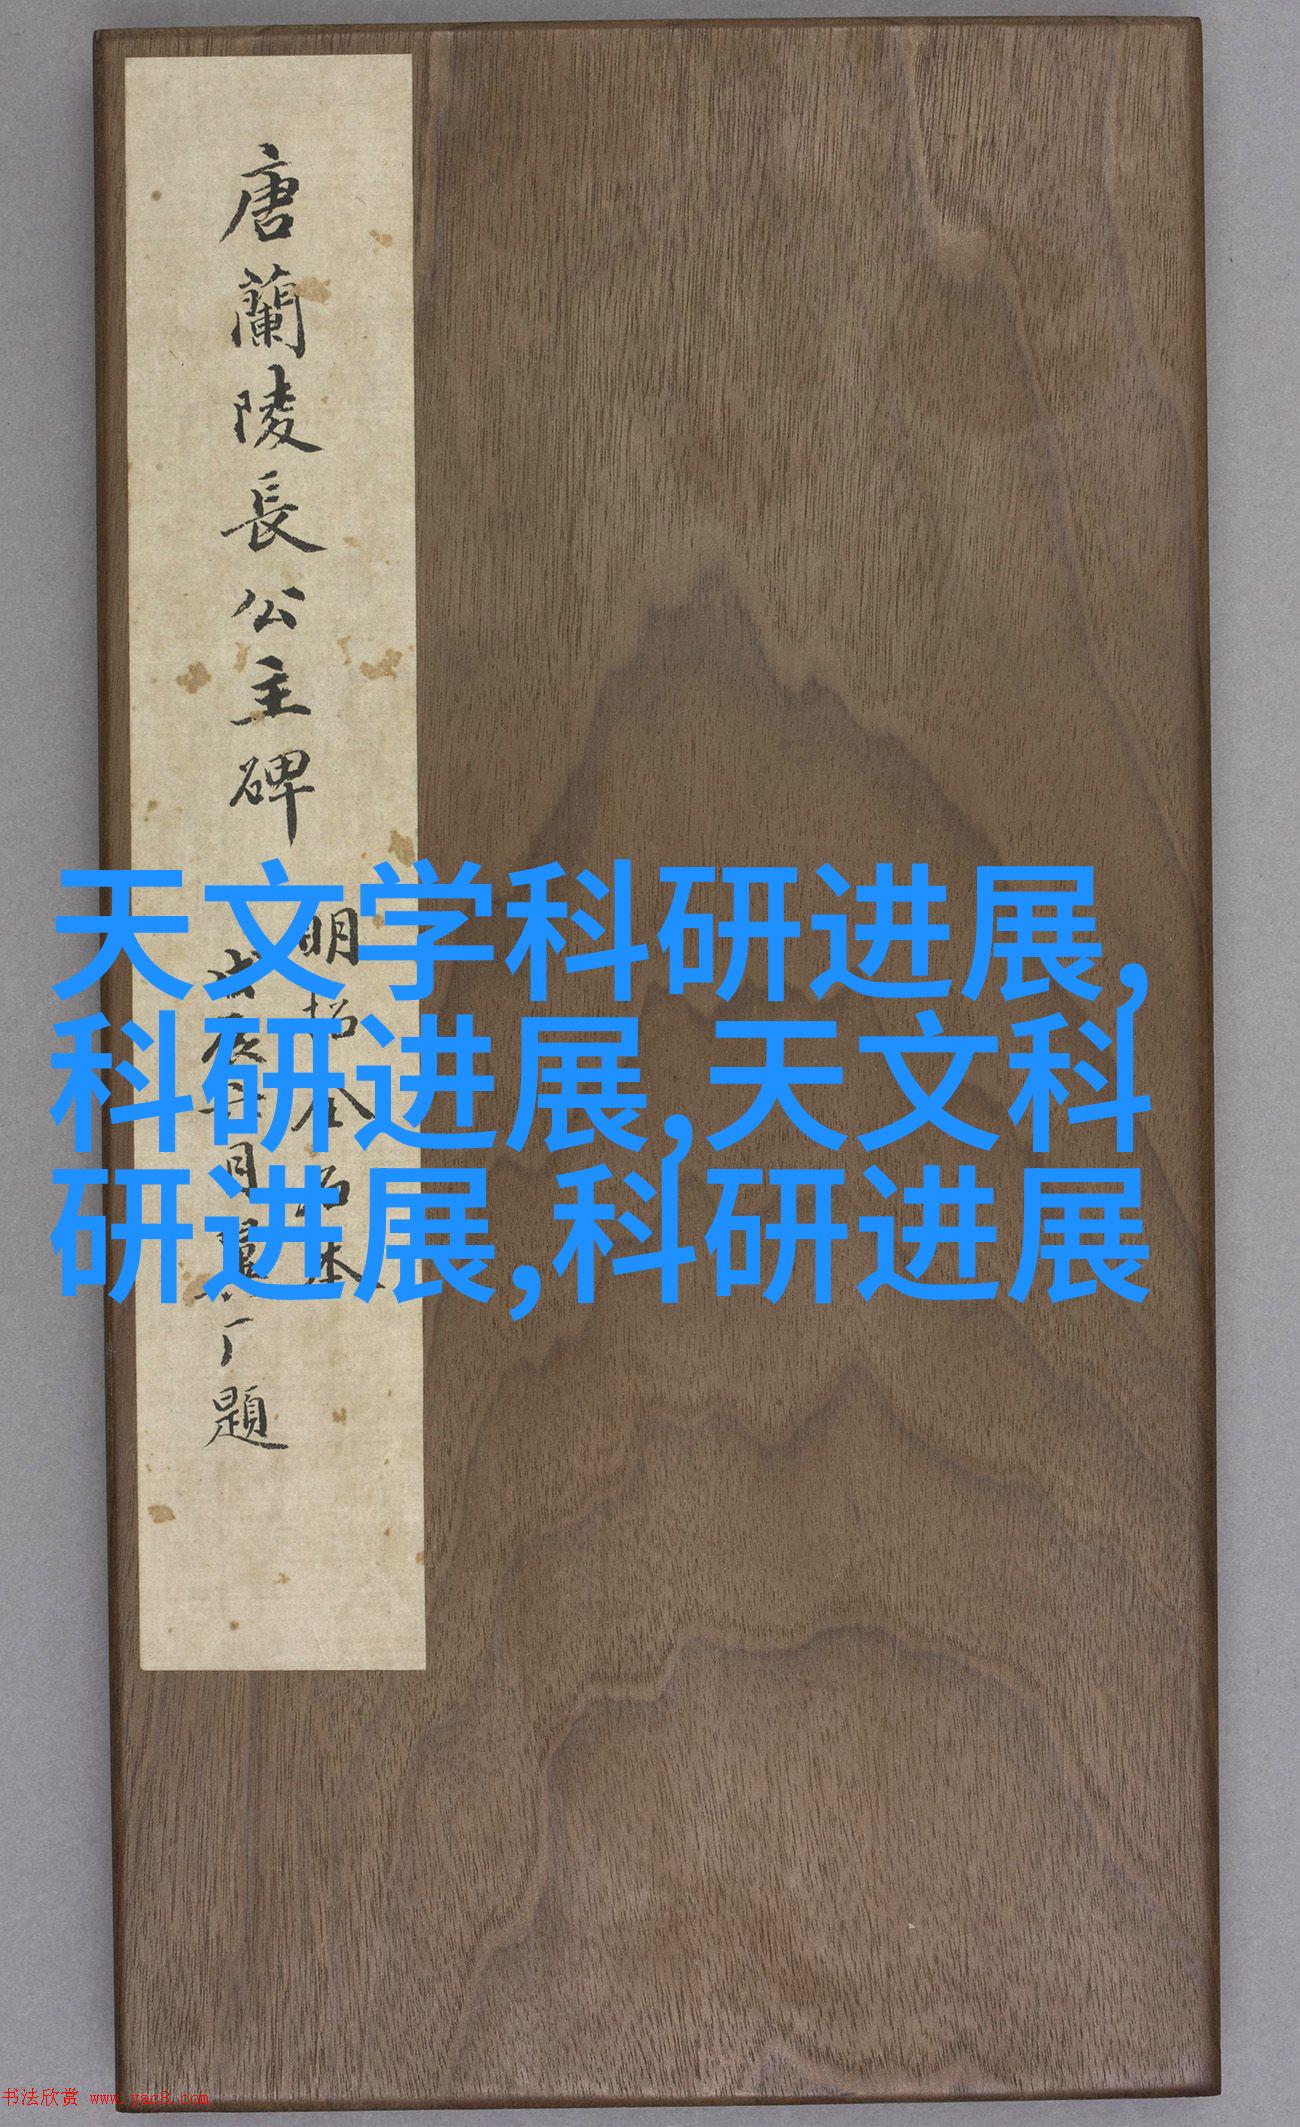 唐蘭陵長公主碑
明拓全石本
戊辰
題
天文学科研进展,
科研进展,天文科
研进展,科研进展
书法欣赏 www.yac8.com